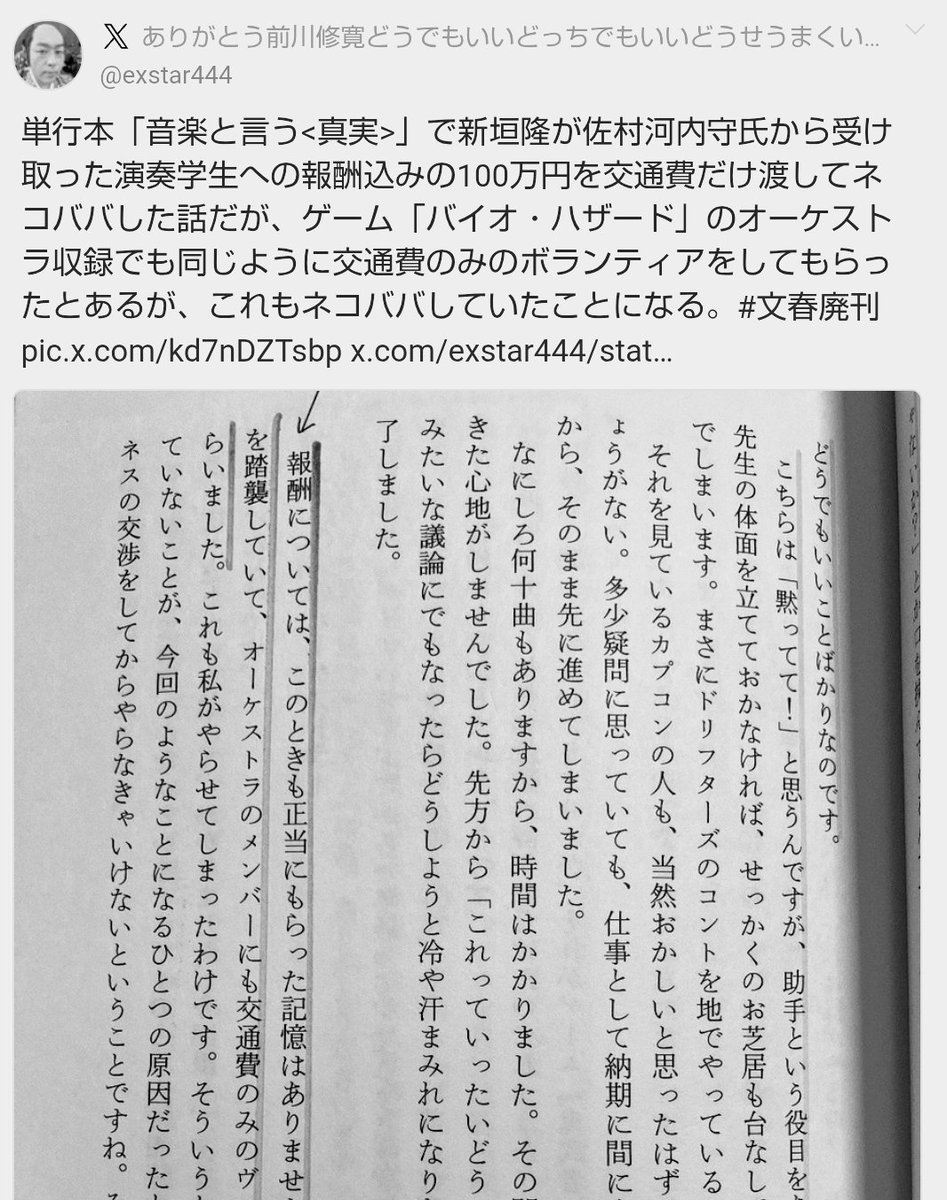 ありがとう前川修寛どうでもいいどっちでもいいどうせうまくい…
@exstar444
単行本「音楽と言う<真実>」で新垣隆が佐村河内守氏から受け
取った演奏学生への報酬込みの100万円を交通費だけ渡してネ
コババした話だが、ゲーム「バイオ・ハザード」のオーケスト
ラ収録でも同じように交通費のみのボランティアをしてもらっ
たとあるが、これもネコババしていたことになる。#文春廃刊
pic.x.com/kd7nDZTsbp x.com/exstar444/stat…
どうでもいいことばかりなのです。
こちらは「黙ってて！」と思うんですが、助手という役目を
先生の体面を立てておかなければ、せっかくのお芝居も台なし
でしまいます。まさにドリフターズのコントを地でやっている
それを見ているカプコンの人も、当然おかしいと思ったはず
ょうがない。多少疑問に思っていても、仕事として納期に間に
から、そのまま先に進めてしまいました。
なにしろ何十曲もありますから、時間はかかりました。その間
きた心地がしませんでした。先方から「これっていったいどう
みたいな議論にでもなったらどうしようと冷や汗まみれになり
了しました。
報酬については、このときも正当にもらった記憶はありませ
を踏襲していて、オーケストラのメンバーにも交通費のみのヴ
らいました。これも私がやらせてしまったわけです。そういう
ていないことが、今回のようなことになるひとつの原因だった
ネスの交渉をしてからやらなきゃいけないということですね。